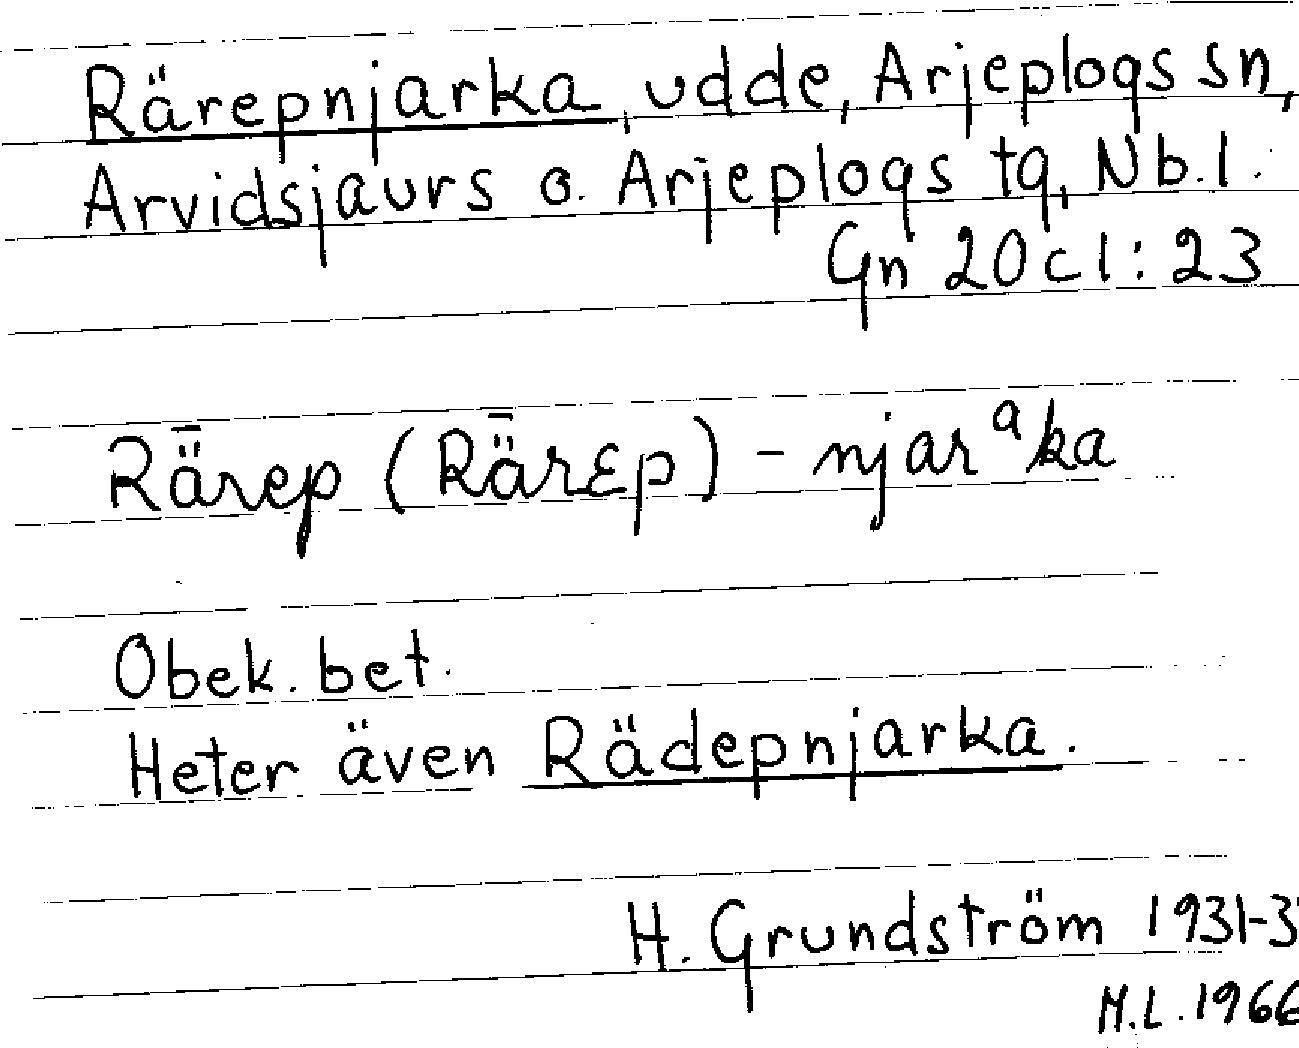 Rärepnjarka, udde, Arjeplogs sn,
Arvidsjaurs o. Arjeplogs tg, Nb.l.
Gn 20 c 1: 23
Rǟrep (Rǟrɛp) - njarᵃka
Obek. bet.
Heter även Rädepnjarka.
H. Grundström 1931-3
M.L. 1966